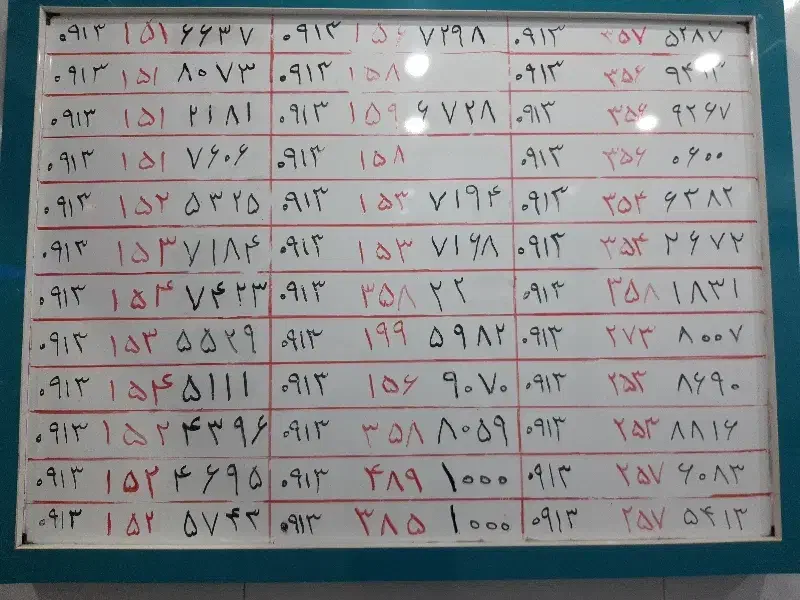 ۰۹۱۳ ۱۵۱ ۶۶۳۷ ۰۹۱۳ ۱۵۶ ۷۲۹۸ ۰۹۱۳ ۲۵۷ ۵۲۸۷
۰۹۱۳ ۱۵۱ ۸۰۷۳ ۰۹۱۳ ۱۵۸ ۰۹۱۳ ۳۵۶
۰۹۱۳ ۱۵۱ ۲۱۸۱ ۰۹۱۳ ۱۵۹ ۶۷۲۸ ۰۹۱۳ ۳۵۶ ۹۲۶۷
۰۹۱۳ ۱۵۱ ۷۶۰۶ ۰۹۱۳ ۱۵۸ ۰۹۱۳ ۳۵۶ ۰۶۰۰
۰۹۱۳ ۱۵۲ ۵۳۲۵ ۰۹۱۳ ۱۵۳ ۷۱۹۴ ۰۹۱۳ ۳۵۴ ۶۳۸۲
۰۹۱۳ ۱۵۳ ۷۱۸۴ ۰۹۱۳ ۱۵۳ ۷۱۶۸ ۰۹۱۳ ۳۵۴ ۲۶۷۲
۰۹۱۳ ۱۵۴ ۷۴۲۳ ۰۹۱۳ ۳۵۸ ۲۲ ۰۹۱۳ ۳۵۸ ۱۸۳۱
۰۹۱۳ ۱۵۳ ۵۵۲۹ ۰۹۱۳ ۱۹۹ ۵۹۸۲ ۰۹۱۳ ۲۷۳ ۸۰۰۷
۰۹۱۳ ۱۵۴ ۵۱۱۱ ۰۹۱۳ ۱۵۶ ۹۰۷۰ ۰۹۱۳ ۲۵۳ ۸۶۹۰
۰۹۱۳ ۱۵۲ ۴۳۹۶ ۰۹۱۳ ۳۵۸ ۸۰۵۹ ۰۹۱۳ ۲۵۳ ۸۸۱۶
۰۹۱۳ ۱۵۲ ۴۶۹۵ ۰۹۱۳ ۴۸۹ ۱۰۰۰ ۰۹۱۳ ۲۵۷ ۶۰۸۳
۰۹۱۳ ۱۵۲ ۵۷۴۳ ۰۹۱۳ ۳۸۵ ۱۰۰۰ ۰۹۱۳ ۲۵۷ ۵۴۱۳